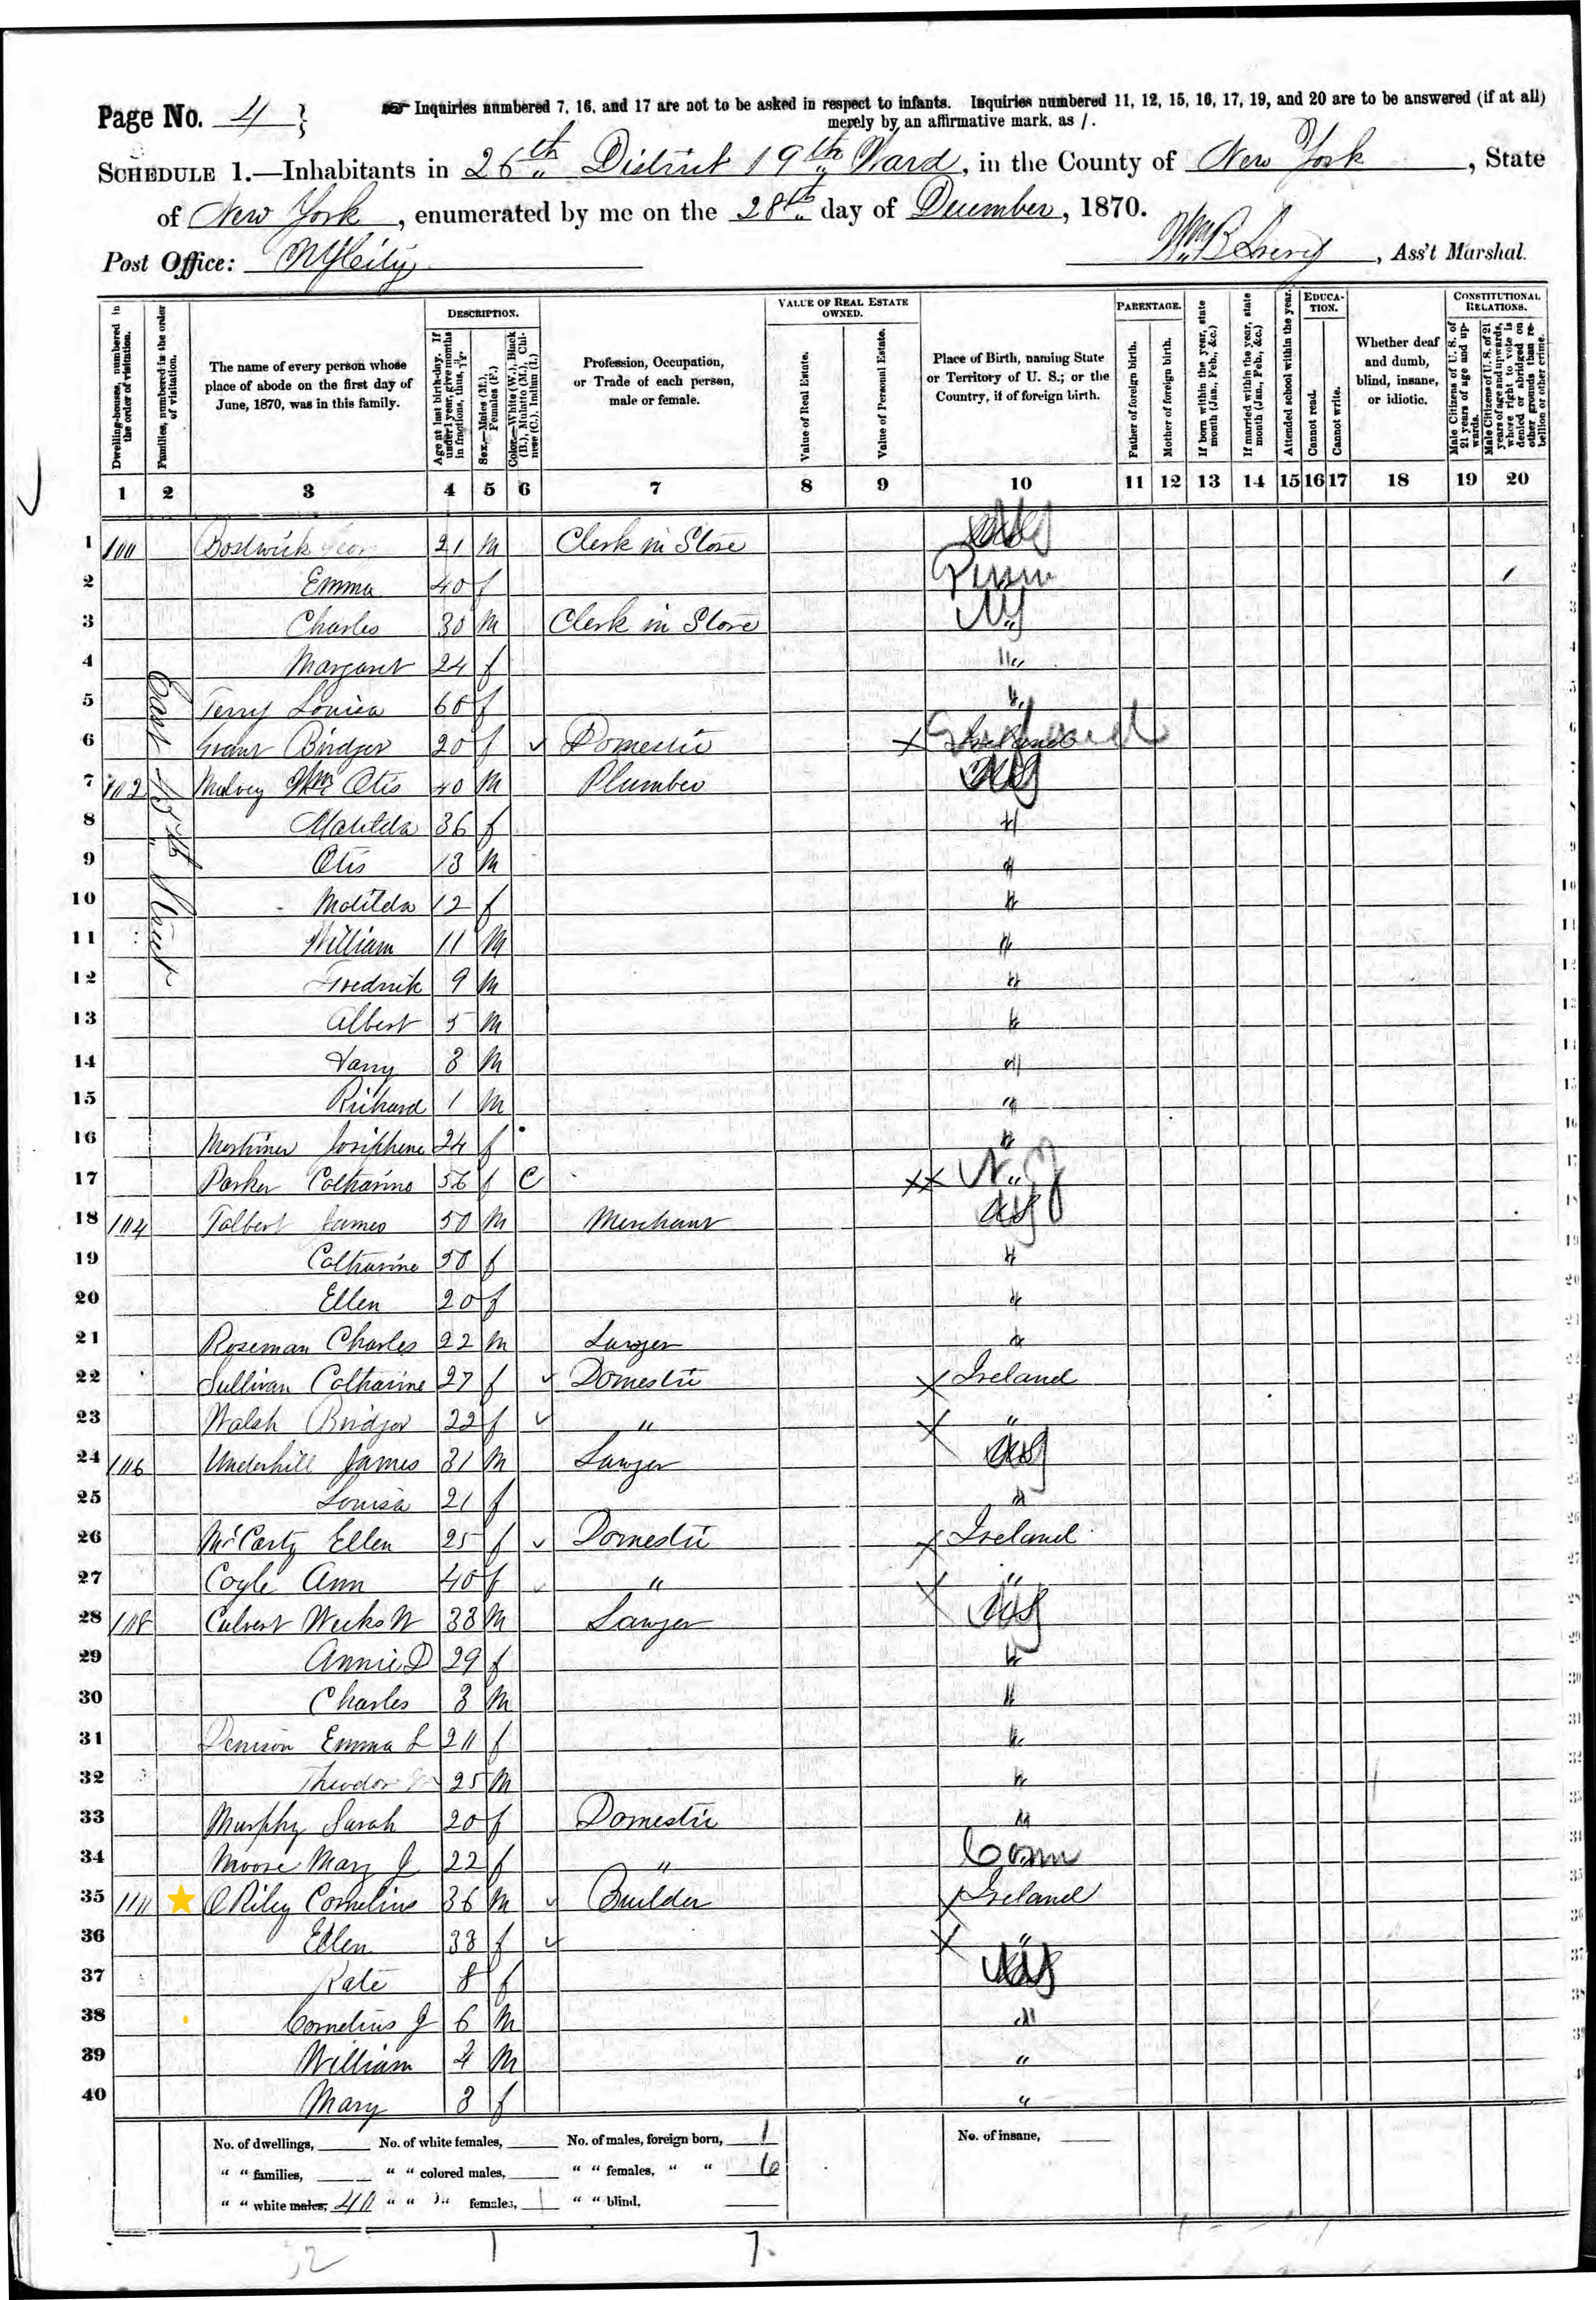 Page No. 4
Inquiries numbered 7, 16, and 17 are not to be asked in respect to infants. Inquiries numbered 11, 12, 15, 16, 17, 19, and 20 are to be answered (if at all)
merely by an affirmative mark, as /.
SCHEDULE 1.—Inhabitants in 26th District 19th Ward, in the County of New York, State
of New York, enumerated by me on the 28th day of December, 1870.
Post Office: NY City
Wm B, Ass't Marshal.
Dwelling-houses, numbered in the order of visitation.
Families, numbered in the order of visitation.
The name of every person whose place of abode on the first day of June, 1870, was in this family.
DESCRIPTION.
Age at last birth-day. If under 1 year, give months in fractions, thus,
Sex.—Males (M.), Females (F.)
Color.—White (W.), Black (B.), Mulatto (M.), Chinese (C.), Indian (I.)
Profession, Occupation, or Trade of each person, male or female.
VALUE OF REAL ESTATE OWNED.
Value of Real Estate.
Value of Personal Estate.
Place of Birth, naming State or Territory of U. S.; or the Country, if of foreign birth.
PARENTAGE.
Father of foreign birth.
Mother of foreign birth.
If born within the year, state month (Jan., Feb., &c.)
If married within the year, state month (Jan., Feb., &c.)
Attended school within the year.
EDUCATION.
Cannot read.
Cannot write.
Whether deaf and dumb, blind, insane, or idiotic.
CONSTITUTIONAL RELATIONS.
Male Citizens of U. S. of 21 years of age and upwards.
Male Citizens of U. S. of 21 years of age and upwards, whose right to vote is denied or abridged on other grounds than rebellion or other crime.
1 2 3 4 5 6 7 8 9 10 11 12 13 14 15 16 17 18 19 20
East 45th Street
1 100 Bostwick Geo 21 M Clerk in Store NY
2 Emma 40 f Penn /
3 Charles 30 M Clerk in Store NY
4 Margaret 24 f "
5 Terry Louisa 60 f "
6 Grant Bridget 20 f ✓ Domestic x Ireland
7 102 Mulvey Wm Otis 40 M Plumber NY
8 Matilda 36 f "
9 Otis 13 M "
10 Matilda 12 f "
11 William 11 M "
12 Fredrick 9 M "
13 Albert 5 M "
14 Harry 3 M "
15 Richard 1 M "
16 Mortimer Josiphene 24 f "
17 Parker Catharine 56 f C xx N. J
18 104 Talbert James 50 M Merchant NY
19 Catharine 50 f "
20 Ellen 20 f "
21 Roseman Charles 22 M Lawyer "
22 Sullivan Catharine 27 f ✓ Domestic x Ireland
23 Walsh Bridget 22 f ✓ " x "
24 106 Underhill James 31 M Lawyer NY
25 Louisa 21 f "
26 McCarty Ellen 25 f ✓ Domestic x Ireland
27 Coyle Ann 40 f ✓ " x "
28 108 Culvert Weeks W 33 M Lawyer NY
29 Annie D 29 f "
30 Charles 3 M "
31 Denison Emma L 20 f "
32 Theodor 25 M "
33 Murphy Sarah 20 f Domestic "
34 Moore Mary J 22 f " Conn
35 110 O Riley Cornelius 36 M ✓ Builder x Ireland
36 Ellen 33 f ✓ x "
37 Kate 8 f NY
38 Cornelius J 6 M "
39 William 4 M "
40 Mary 3 f "
No. of dwellings, No. of white females, No. of males, foreign born, 1 No. of insane,
" " families, " " colored males, " " females, " " 6
" " white males, 40 " " " females, 1 " " blind,
32 1 7.